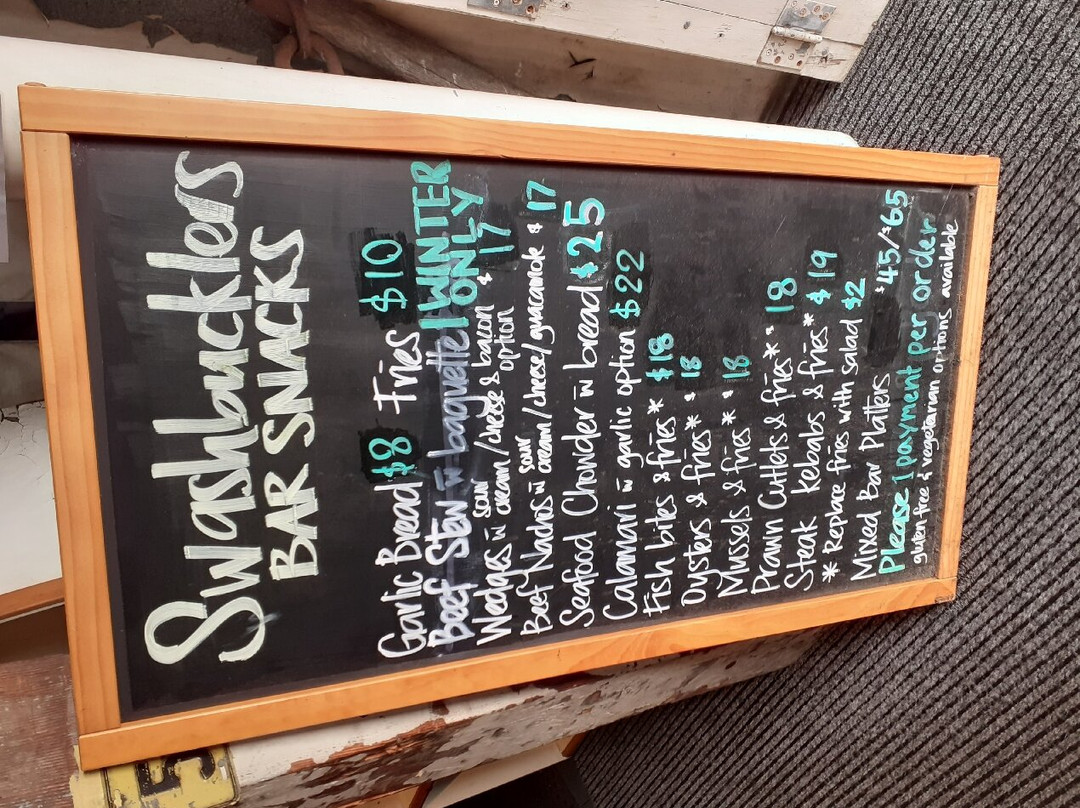 Swashbucklers
BAR SNACKS
Garlic Bread $8 Fries $10
Beef Stew w baguette | WINTER ONLY
Wedges w sour cream / cheese & bacon option $ 17
Beef Nachos w sour cream / cheese / guacamole $ 17
Seafood Chowder w bread $25
Calamari w garlic option $22
Fish bites & fries* $18
Oysters & fries* $ 18
Mussels & fries * $ 18
Prawn Cutlets & fries* $ 18
Steak kebabs & fries* $19
* Replace fries with salad $2
Mixed Bar Platters $45/$65
Please 1 payment per order
gluten free & vegetarian options available